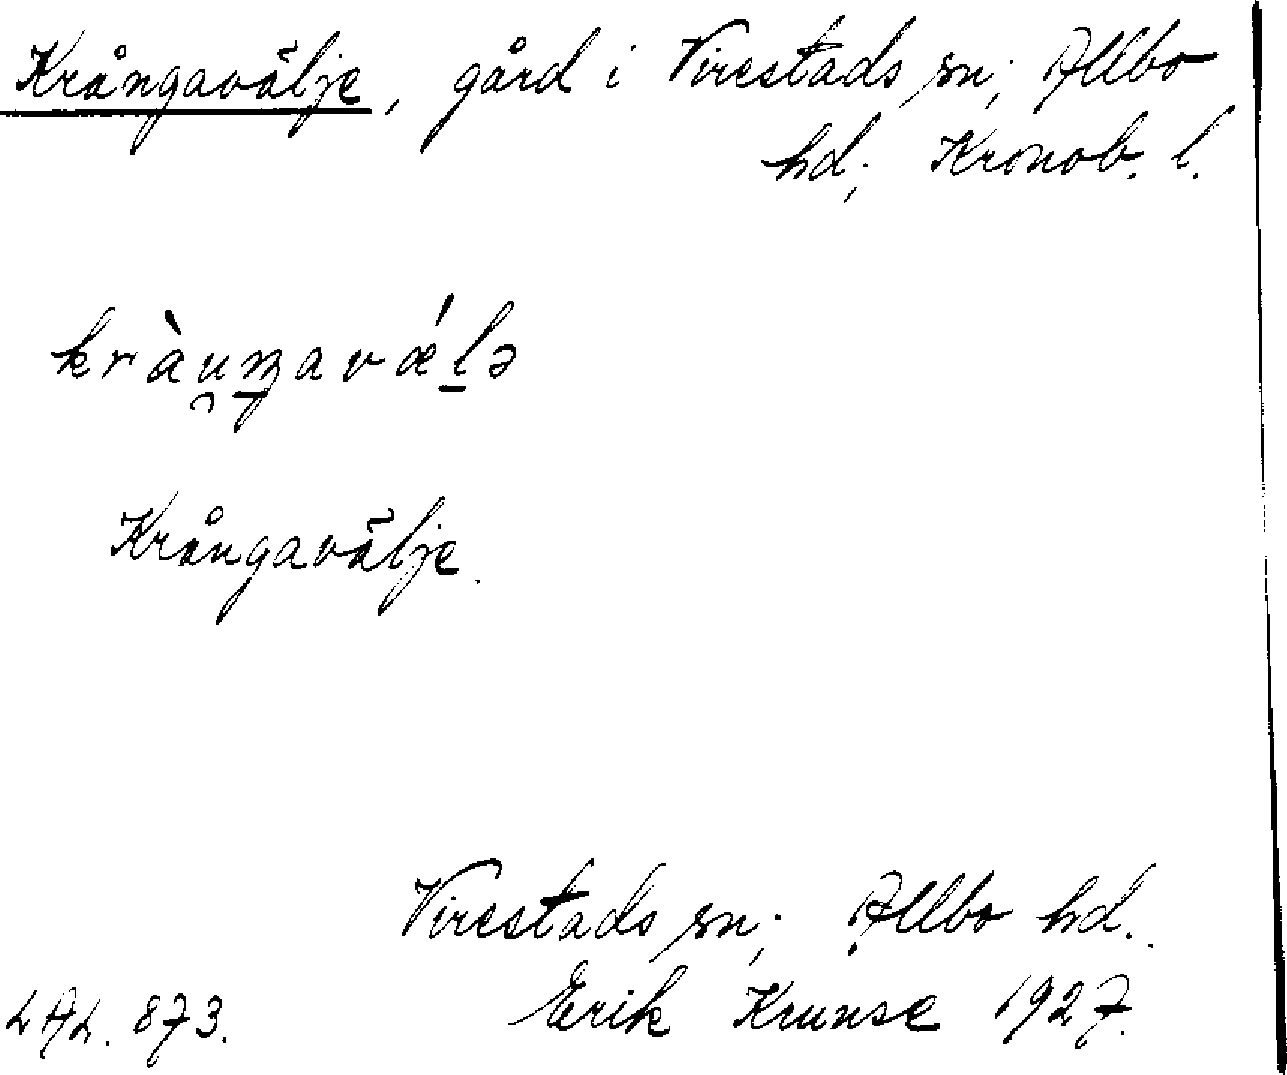 Krångavälje, gård i Virestads sn; Allbo
hd; Kronob. l.
kràu̯ŋavǽlə
Krångavälje.
Virestads sn; Allbo hd.
LAL. 873. Erik Krunse 1927.